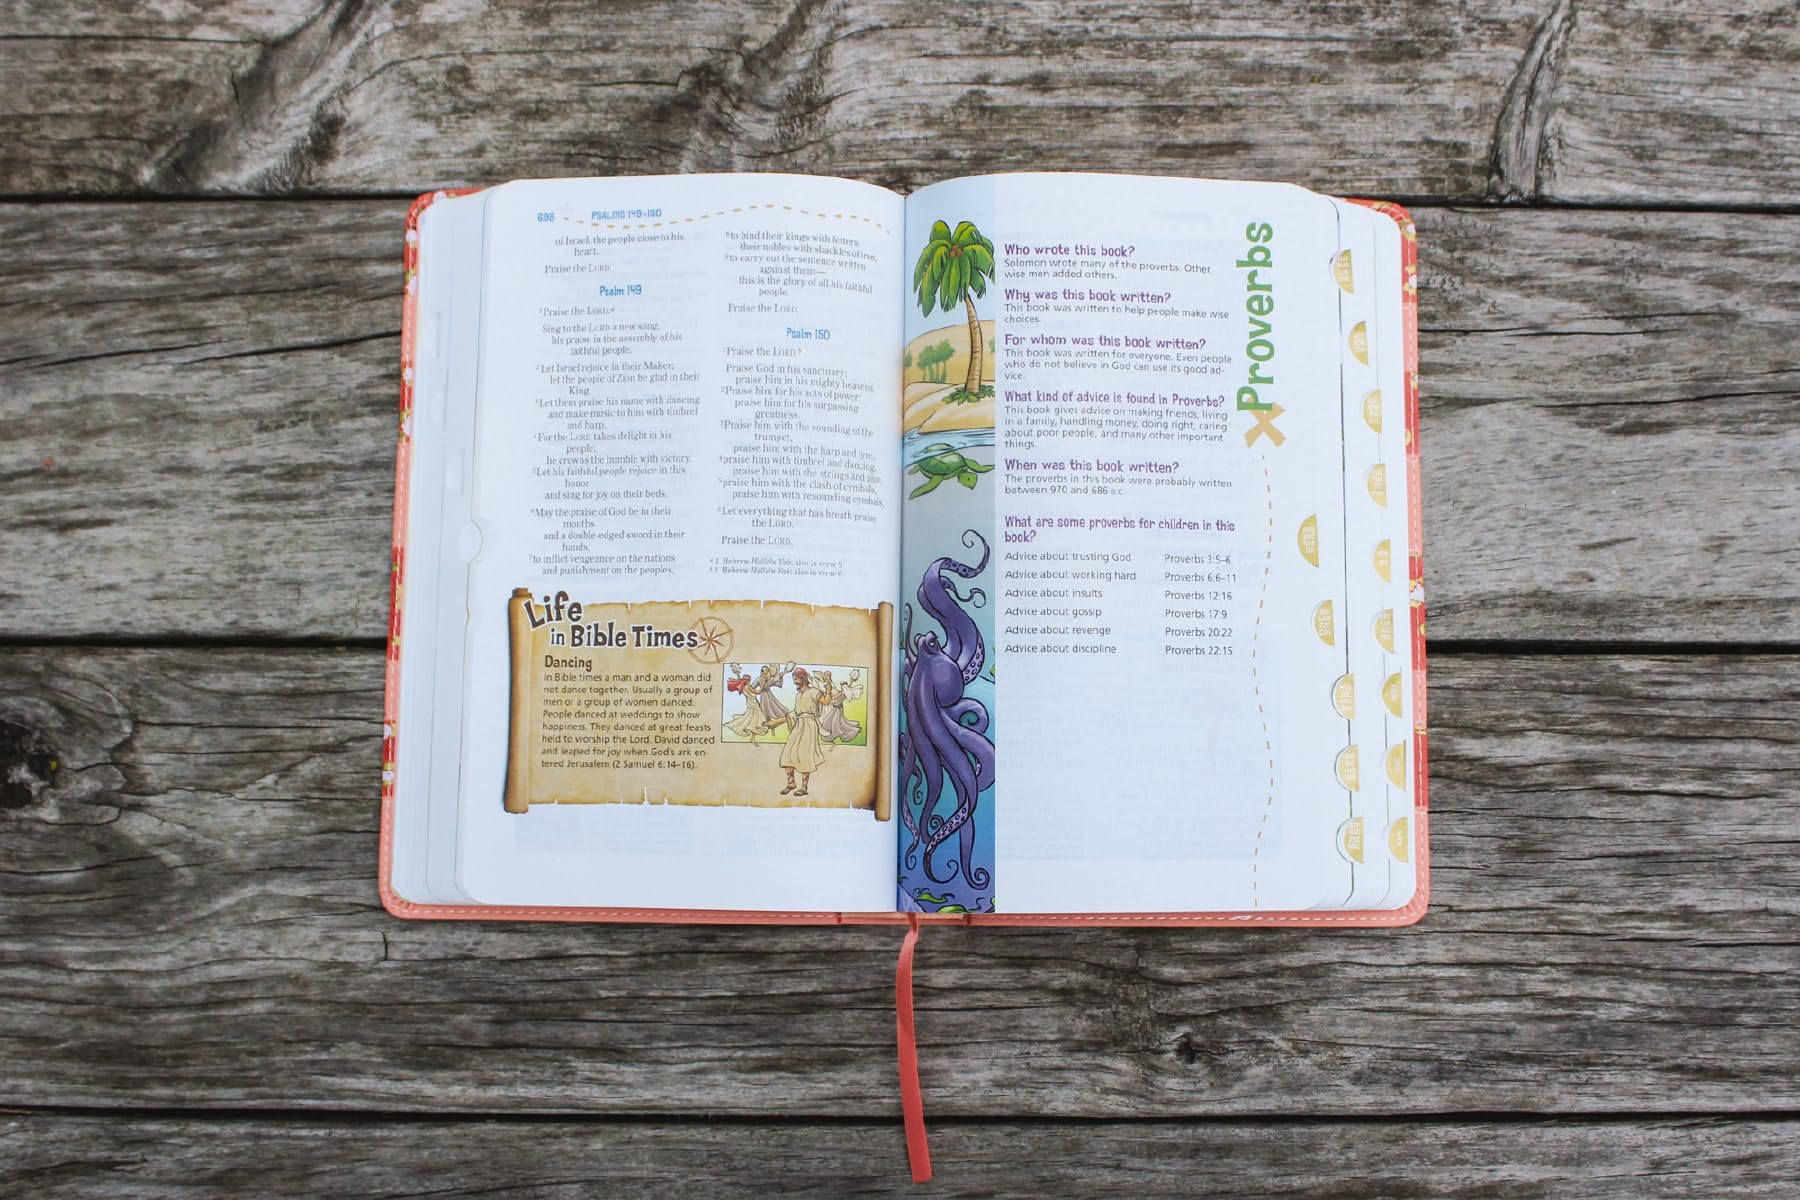 698 PSALMS 149–150
of Israel, the people close to his
heart.
Praise the LORD.
Psalm 149
1Praise the LORD.a
Sing to the LORD a new song,
his praise in the assembly of his
faithful people.
2Let Israel rejoice in their Maker;
let the people of Zion be glad in their
King.
3Let them praise his name with dancing
and make music to him with timbrel
and harp.
4For the LORD takes delight in his
people;
he crowns the humble with victory.
5Let his faithful people rejoice in this
honor
and sing for joy on their beds.
6May the praise of God be in their
mouths
and a double-edged sword in their
hands,
7to inflict vengeance on the nations
and punishment on the peoples,
8to bind their kings with fetters,
their nobles with shackles of iron,
9to carry out the sentence written
against them—
this is the glory of all his faithful
people.
Praise the LORD.
Psalm 150
1Praise the LORD.b
Praise God in his sanctuary;
praise him in his mighty heavens.
2Praise him for his acts of power;
praise him for his surpassing
greatness.
3Praise him with the sounding of the
trumpet,
praise him with the harp and lyre,
4praise him with timbrel and dancing,
praise him with the strings and pipe,
5praise him with the clash of cymbals,
praise him with resounding cymbals.
6Let everything that has breath praise
the LORD.
Praise the LORD.
a 1 Hebrew Hallelu Yah; also in verse 9
b 1 Hebrew Hallelu Yah; also in verse 6
Life
in Bible Times
Dancing
In Bible times a man and a woman did
not dance together. Usually a group of
men or a group of women danced.
People danced at weddings to show
happiness. They danced at great feasts
held to worship the Lord. David danced
and leaped for joy when God's ark en-
tered Jerusalem (2 Samuel 6:14–16).
Proverbs
Who wrote this book?
Solomon wrote many of the proverbs. Other
wise men added others.
Why was this book written?
This book was written to help people make wise
choices.
For whom was this book written?
This book was written for everyone. Even people
who do not believe in God can use its good ad-
vice.
What kind of advice is found in Proverbs?
This book gives advice on making friends, living
in a family, handling money, doing right, caring
about poor people, and many other important
things.
When was this book written?
The proverbs in this book were probably written
between 970 and 686 B.C.
What are some proverbs for children in this
book?
Advice about trusting God Proverbs 3:5–6
Advice about working hard Proverbs 6:6–11
Advice about insults Proverbs 12:16
Advice about gossip Proverbs 17:9
Advice about revenge Proverbs 20:22
Advice about discipline Proverbs 22:15